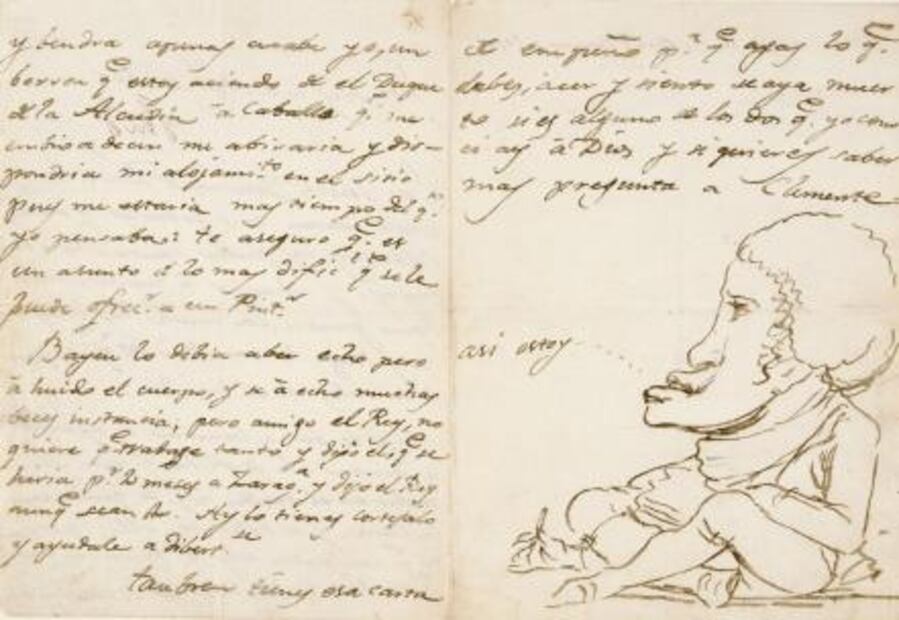 y bendra apenas acabe yo, un
borron q.e estoy aciendo de el Duque
de la Alcudia a Caballo q.e me
embio a decir me abisaria y dis-
pondria mi alojam.to en el sitio
pues me estaria mas tiempo del q.e
yo pensaba: te aseguro q.e es
un asunto de lo mas dificil q.e se le
puede ofrec.r a un Pint.r
Bayeu lo debia aber echo pero
à huido el cuerpo, y se à echo muchas
beces instancia, pero amigo el Rey, no
quiere q.e trabage tanto y dijo el q.e se
hiria p.r 2 meses a Zarag.a y dijo el Rey
aunq.e sean 4. Ay lo tienes cortejalo
y ayudale a dibert.se
tambien tienes esa carta
de empeño p.a q.e agas lo q.e
debes, acer y siento se aya muer
to si es alguno de los dos q.e yo conoci
ay à Dios y si quieres saber
mas pregunta a Clemente
asi estoy